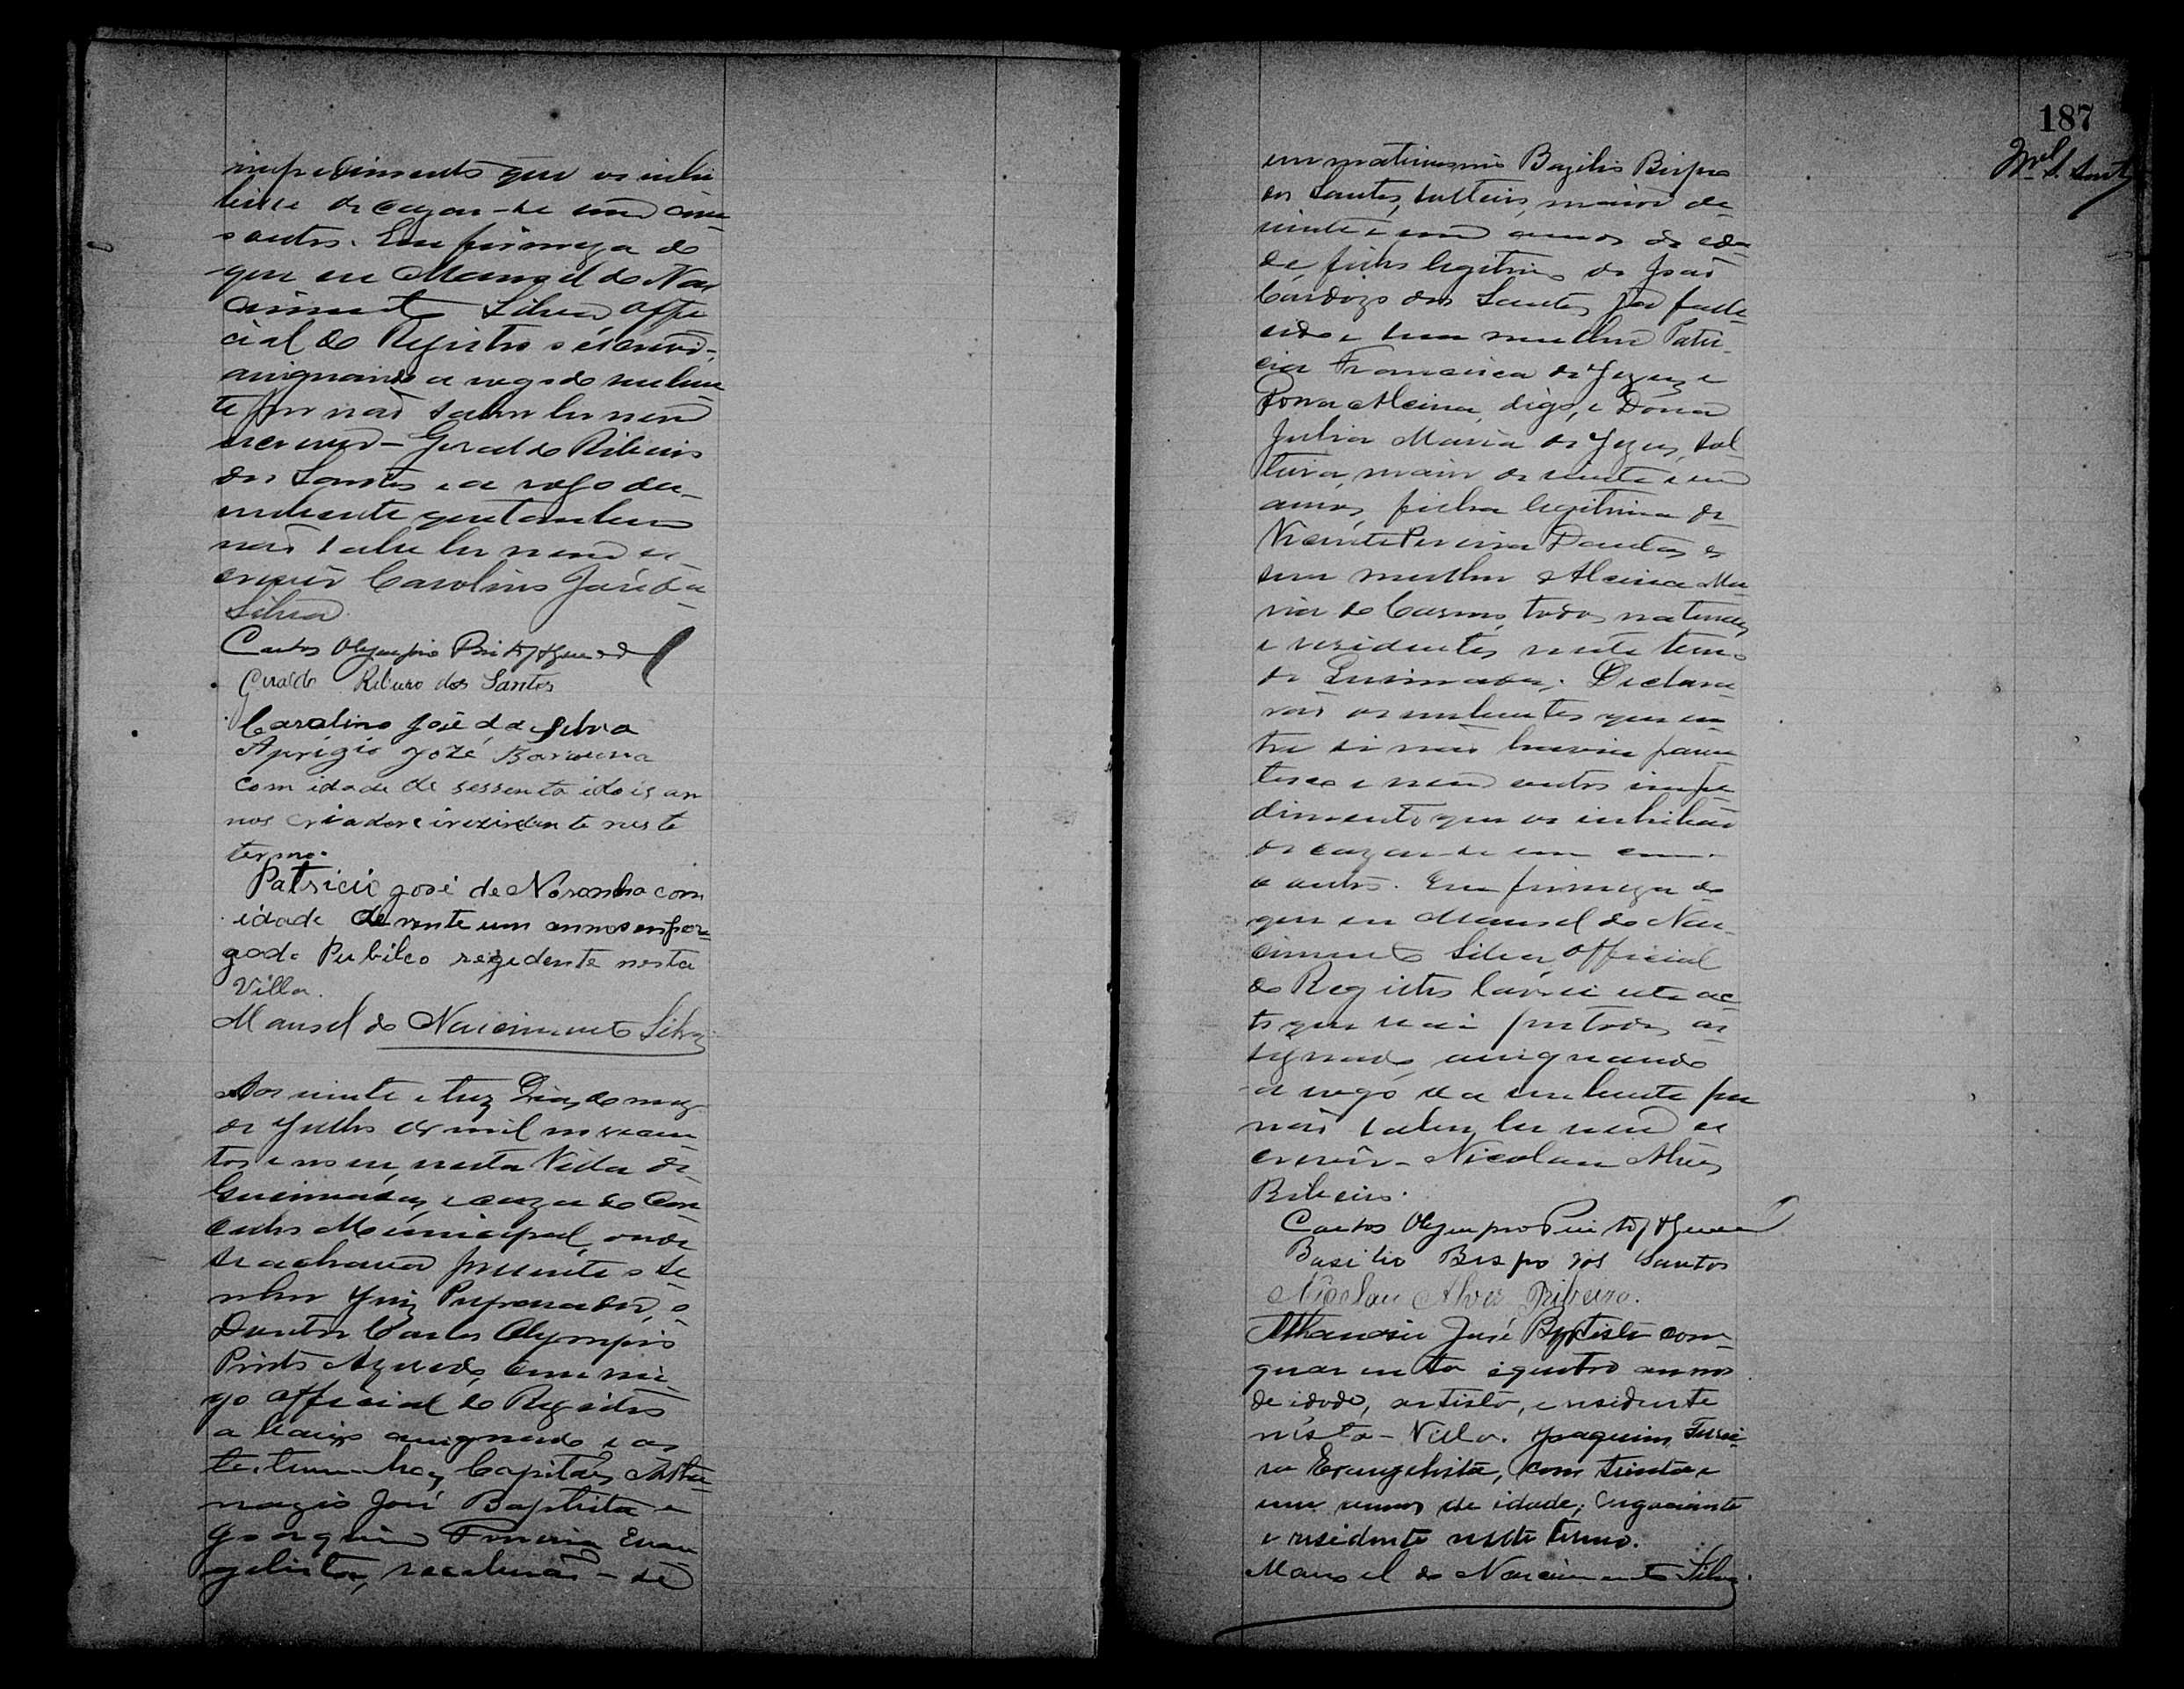 impedimento que os inhi
bisse de cazar-se um com
o outro. Em firmeza do
que eu Manoel do Nas
cimento Silva Offi
cial do Registro o escrevi,
assignando a rogo do nuben
te por não saber ler nem
escrever - Geraldo Ribeiro
dos Santos e a rogo da
nubente que tambem
não sabe ler nem es
crever Carolino José da
Silva.
Carlos Olympio Pinto d'Azevedo
Geraldo Ribeiro dos Santos
Carolino José da Silva
Aprigio Jozé Barauna
com idade de sessenta idois an
nos criador eirezidente neste
termo.
Patricio José de Noronha com
idade de vinte um annos enpre
gado Publico rezidente nesta
Villa.
Manoel do Nascimento Silva
Aos vinte e trez dias do mez
de Julho de mil novecen
tos e nove, nesta Villa de
Queimadas, e caza do Con
celho Municipal, onde
se achava prezente o Se
nhor Juiz Preparador, o
Doutor Carlos Olympio
Pinto Azevedo, commi
go official do Registro
abaixo assignado e as
testemunhas Capitão Atha
nazio José Baptista e
Joaquim Evan
gelista, receberão-se
187
Mel. S. Santos
em matrimonio Bazilio Bispo
dos Santos, solteiro, maior de
vinte e um annos de ida
de, filho legitimo de João
Cardozo dos Santos, já falle
cido e sua mulher Patri
cia Francisca de Jezus e
Dona Alcina, digo, e Dona
Julia Maria de Jezus, sol
teira, maior de vinte e um
annos, filha legitima de
Vicente Pereira Dantas e
sua mulher Alcina Ma
ria do Carmo, todos naturaes
e rezidentes neste termo
de Queimadas. Declara
rão os nubentes que en
tre si não havia paren
tesco e nem outro impe
dimento que os inhibão
de cazar-se um com
o outro. Em firmeza do
que eu Manoel do Nas
cimento Silva, Official
do Registro lavrei este ac
to que vai por todos as
signado, assignando
a rogo da nubente por
não saber ler nem es
crever - Nicolau Alves
Ribeiro.
Carlos Olympio Pinto d'Azevedo
Basilio Bispo dos Santos
Nicolau Alves Ribeiro.
Athanasio José Baptista com
quarenta equatro annos
de idade, artista, e residente
nesta - Villa. Joaquim
Evangelista, com trinta e
um annos de idade, negociante
e residente neste termo.
Manoel do Nascimento Silva.